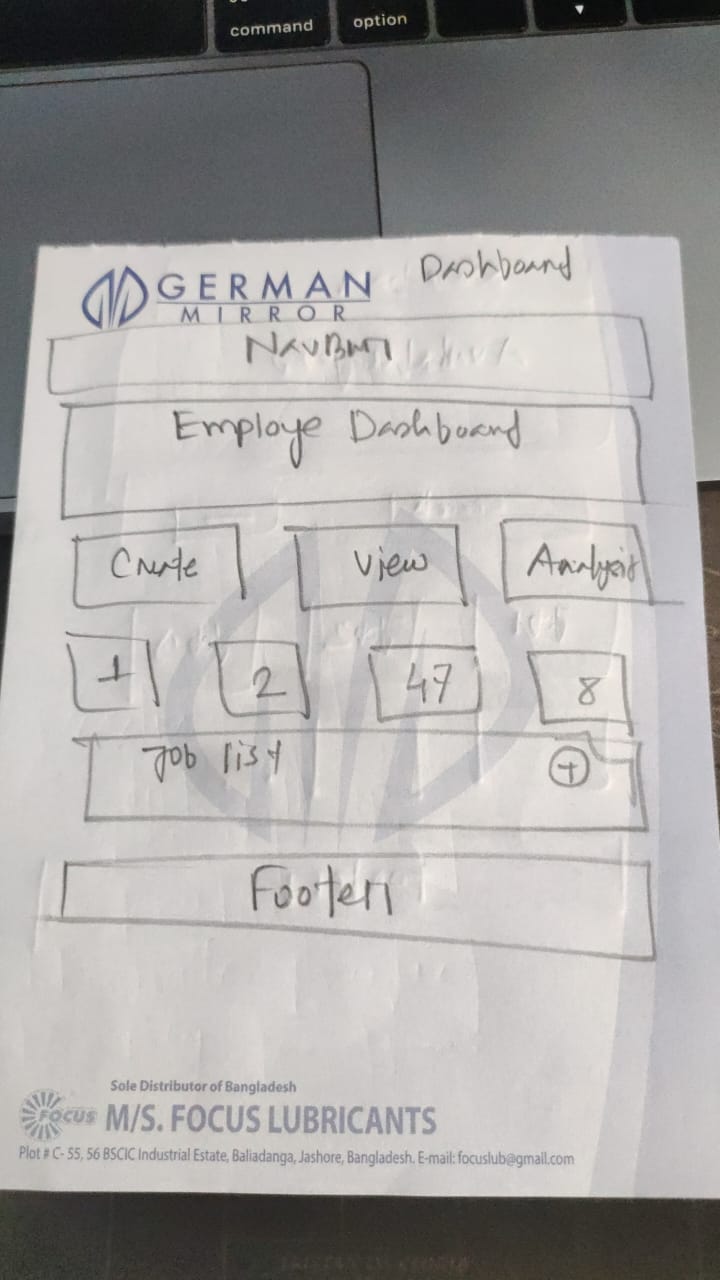 command option
GERMAN
MIRROR
Dashboard
Navbar
Employe Dashboard
Create View Analysis
1 2 47 8
Job list +
Footer
Sole Distributor of Bangladesh
FOCUS M/S. FOCUS LUBRICANTS
Plot # C- 55, 56 BSCIC Industrial Estate, Baliadanga, Jashore, Bangladesh. E-mail: focuslub@gmail.com